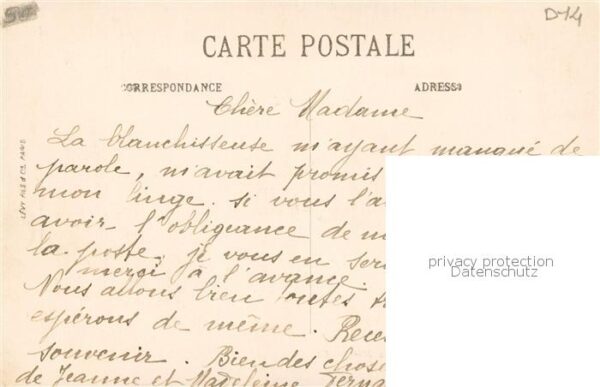 D14
CARTE POSTALE
CORRESPONDANCE
ADRESSE
Chère Madame
La blanchisseuse m'ayant manqué de
parole, m'avait promis
mon linge. si vous l'a
avoir l'obligeance de m
la poste, je vous en ser
merci à l'avance.
Nous allons bien toutes
espérons de même. Rece
souvenir. Bien des chose
de Jeanne et Madeleine
LÉVY FILS & CIE, PARIS
privacy protection
Datenschutz